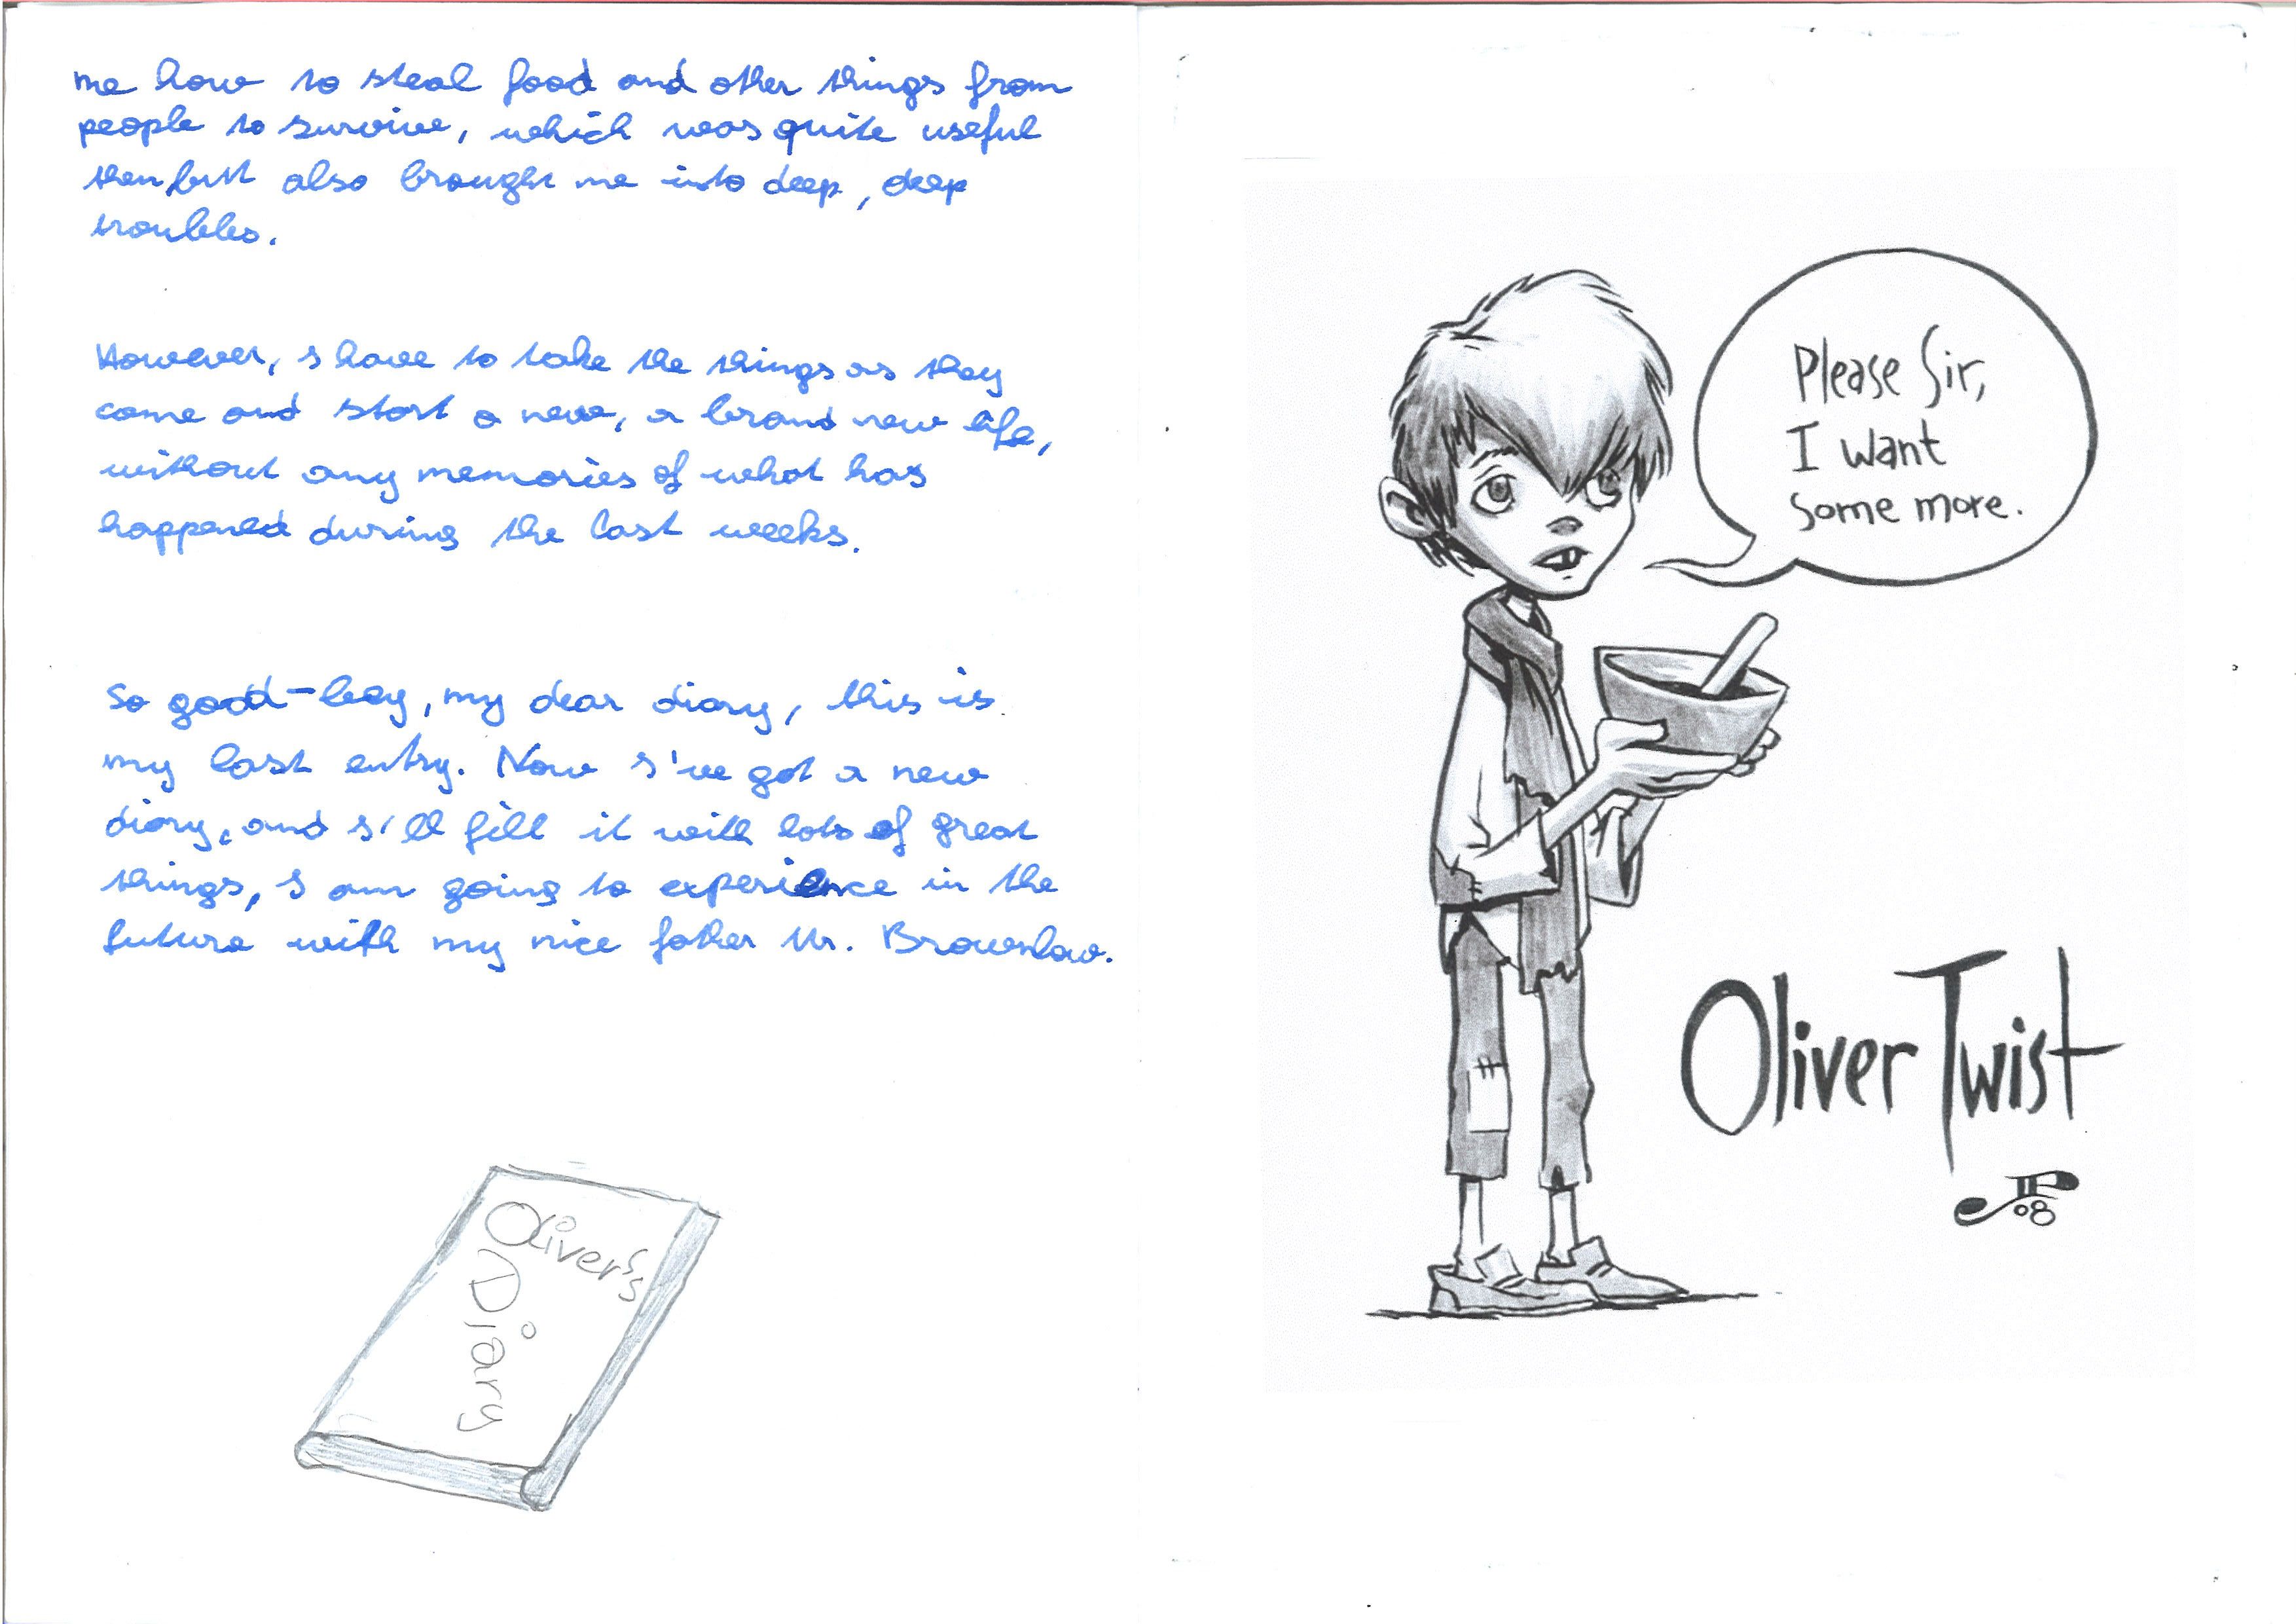 me how to steal food and other things from
people to survive, which was quite useful
then, but also brought me into deep, deep
troubles.
However, I have to take the things as they
come and start a new, a brand new life,
without any memories of what has
happened during the last weeks.
So good-bey, my dear diary, this is
my last entry. Now I've got a new
diary, and I'll fill it with lots of great
things, I am going to experience in the
future with my nice father Mr. Brownlow.
Oliver's
Diary
Please Sir,
I want
some more.
Oliver Twist
08